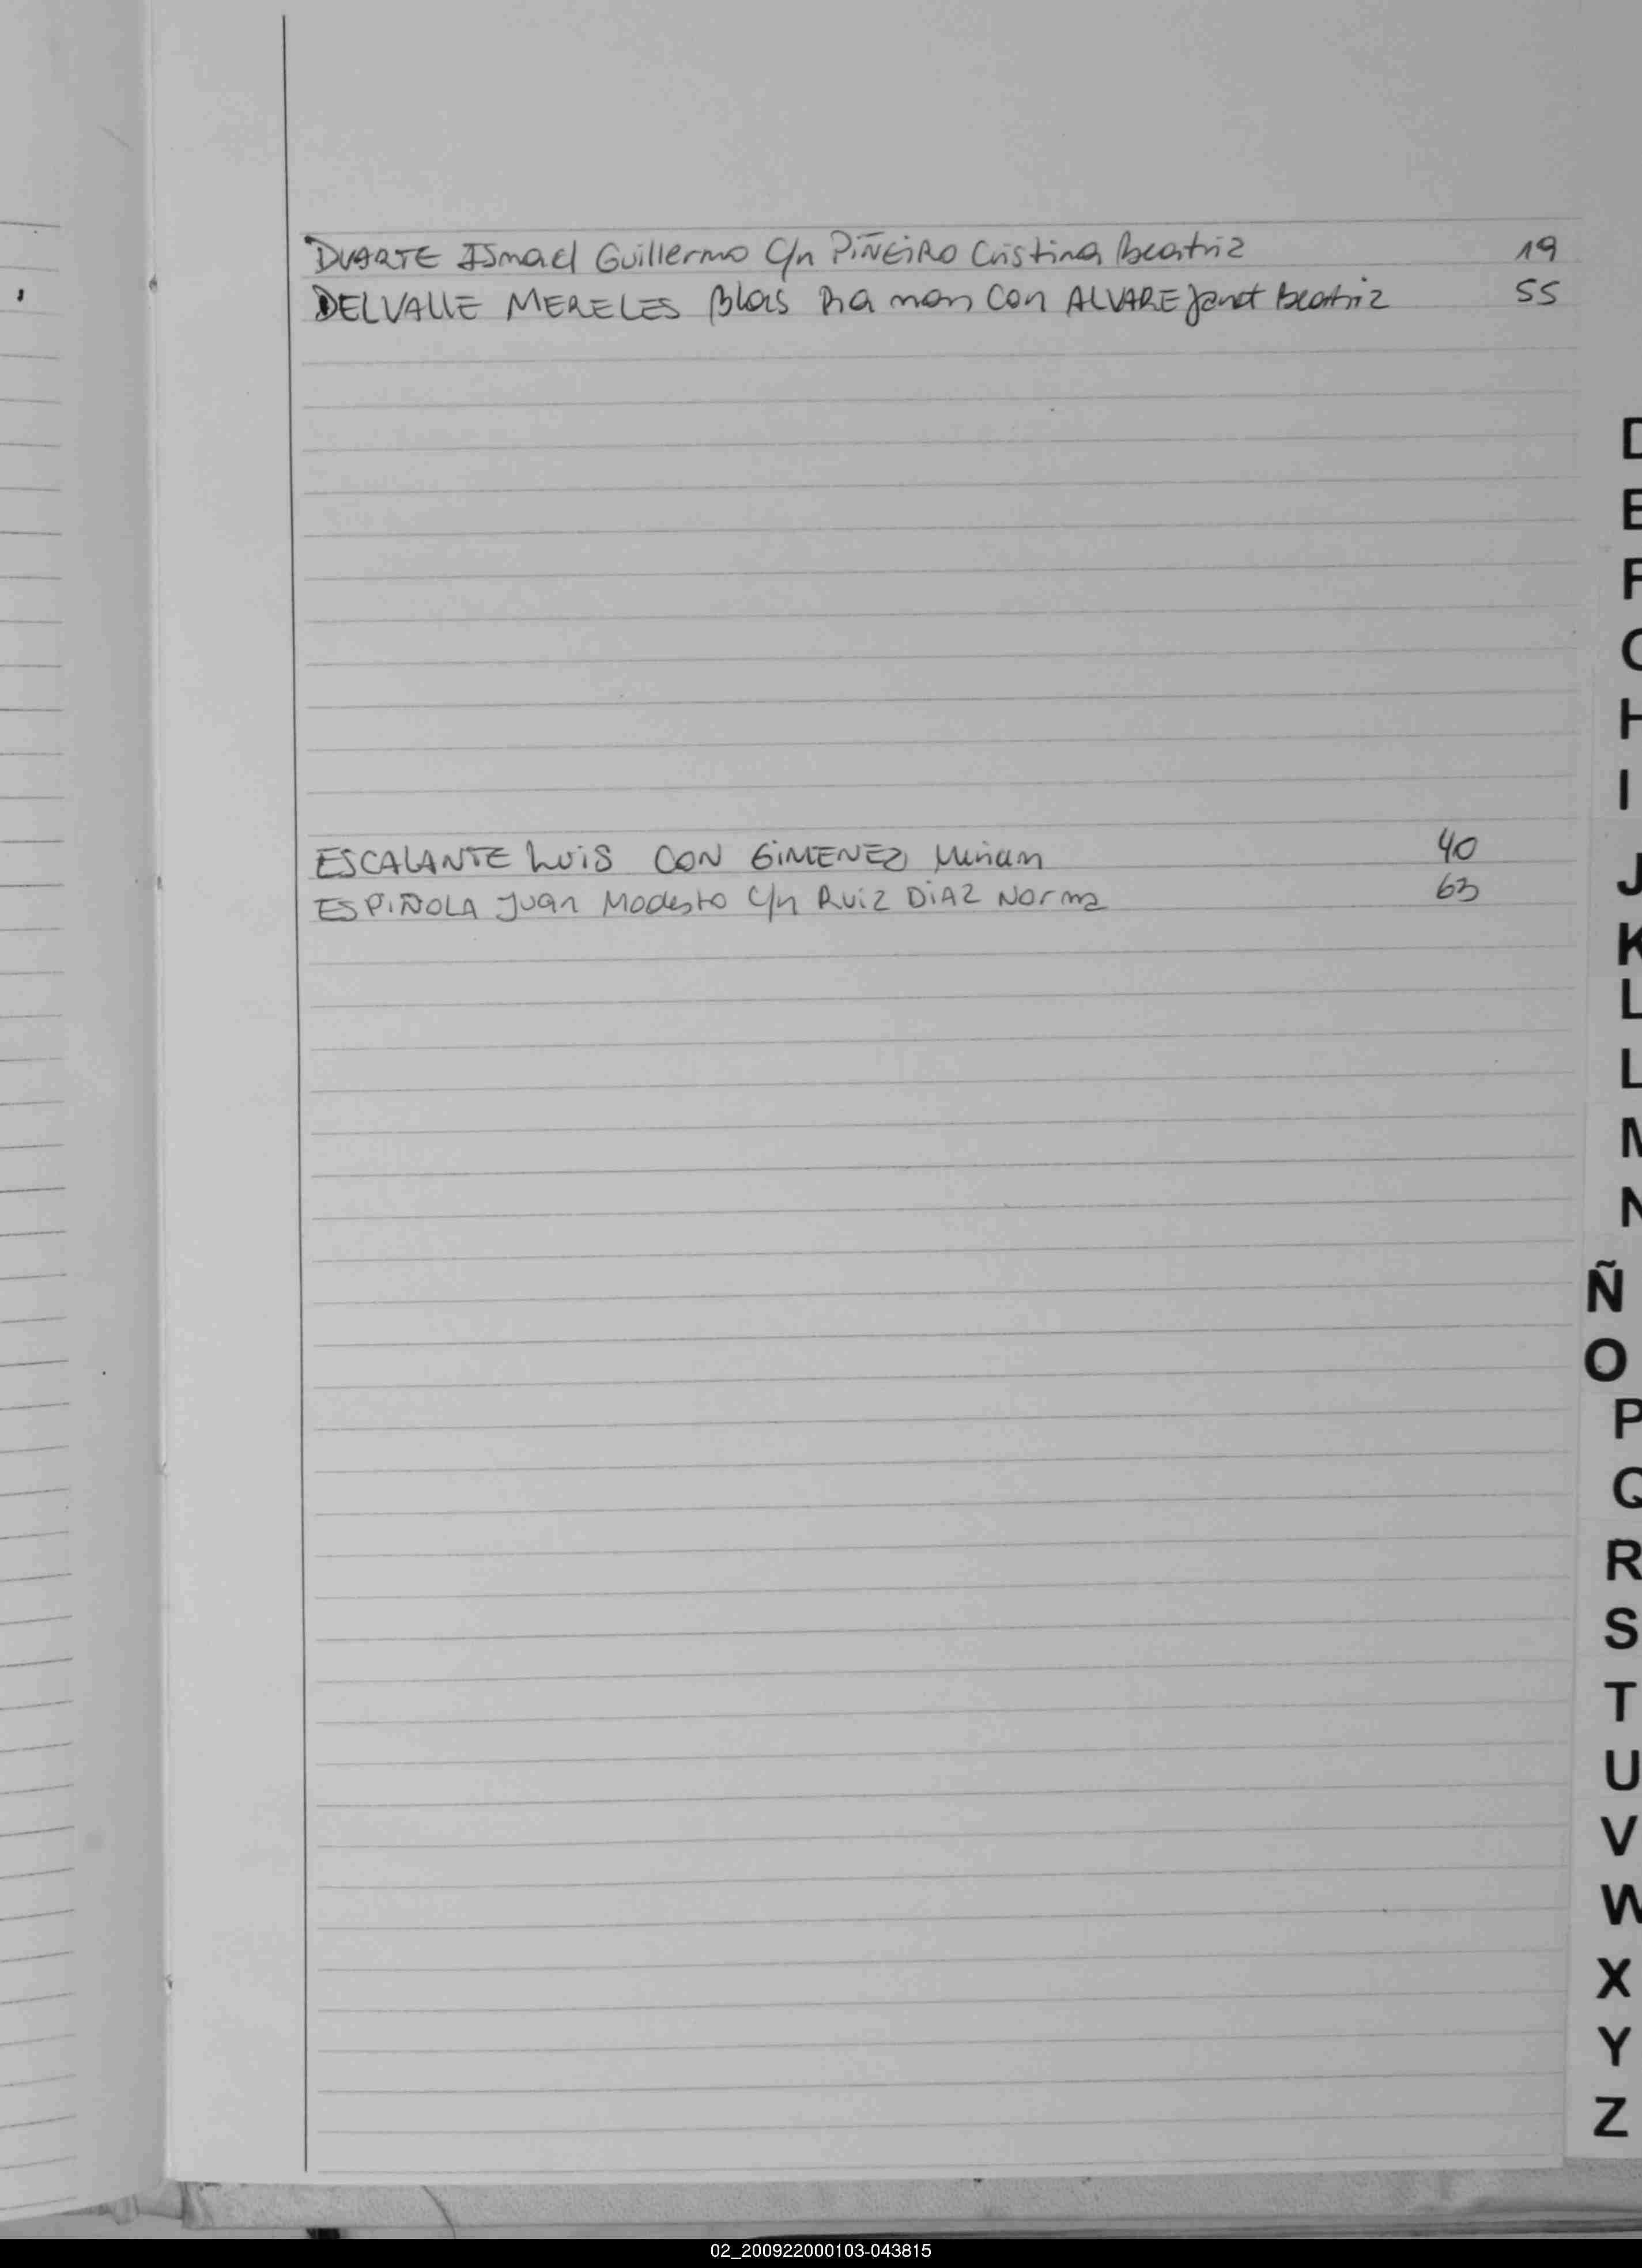 DUARTE Ismael Guillermo C/n PIÑEIRO Cristina Beatriz 19
DELVALLE MERELES Blas Ramon Con ALVARE Janet Beatriz 55
D
E
F
G
H
I
ESCALANTE Luis CON GIMENEZ Miriam 40
ESPIÑOLA Juan Modesto C/n RUIZ DIAZ Norma 63
J
K
L
L
M
N
Ñ
O
P
Q
R
S
T
U
V
W
X
Y
Z
02_200922000103-043815